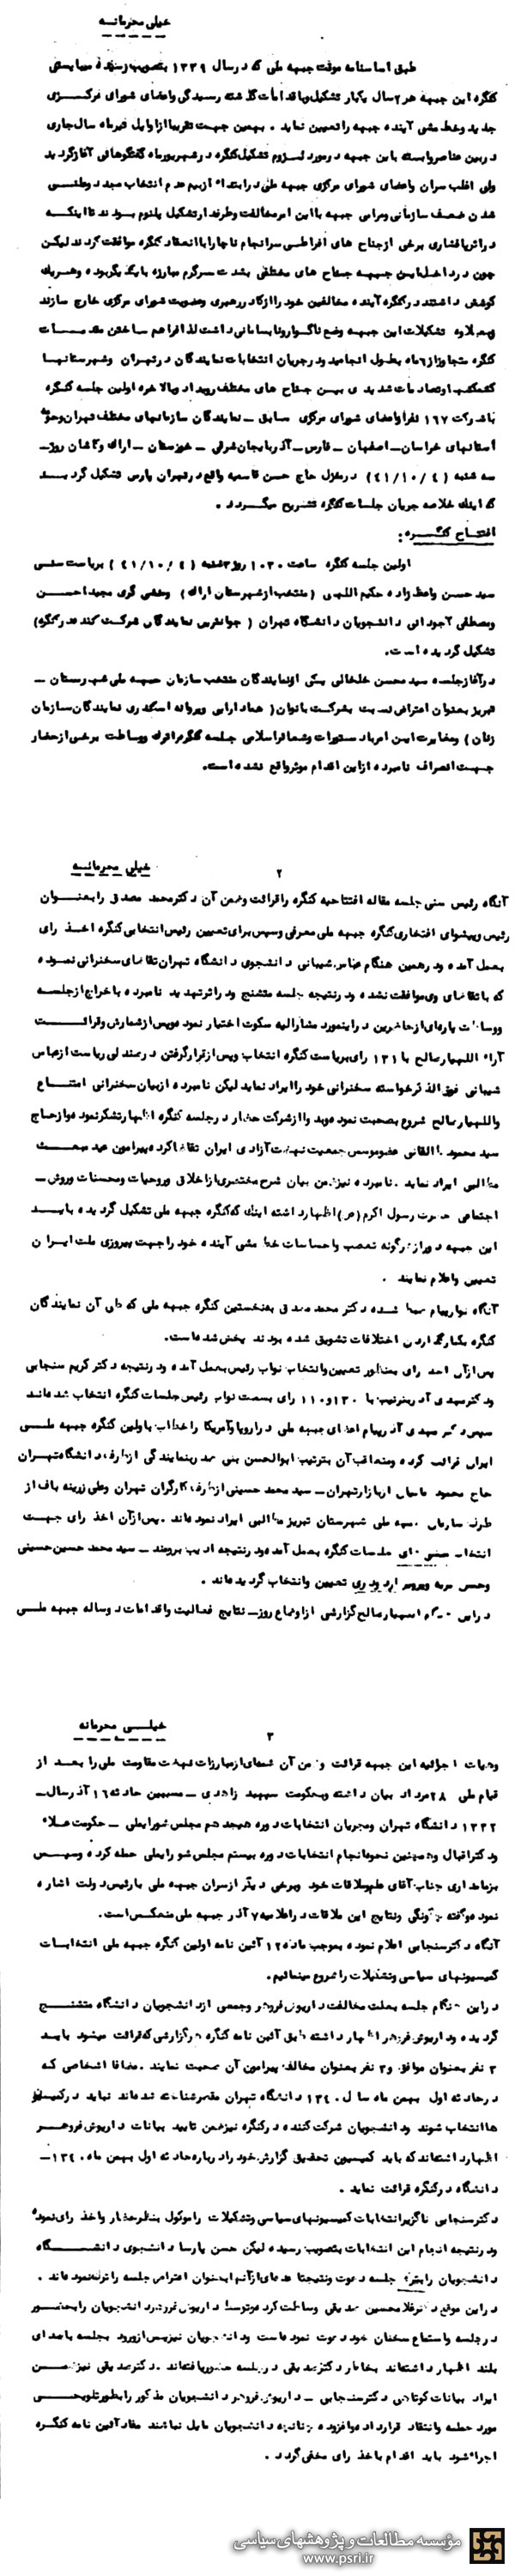 خیلی محرمانه
طبق اساسنامه موقت جبهه ملی که در سال ۱۳۳۹ بتصویب رسیده میبایستی
کنگره این جبهه هر ۲ سال یکبار تشکیل و باقدامات گذشته رسیدگی و اعضای شورای مرکزی
جدید و خط مشی آینده جبهه را تعیین نماید . بهمین جهت تقریبا از اوایل تیرماه سال جاری
در بین عناصر وابسته باین جبهه در مورد لزوم تشکیل کنگره در شهریورماه گفتگوهائی آغاز گردید
ولی اغلب سران و اعضای شورای مرکزی جبهه ملی در ابتداء از بیم عدم انتخاب مجدد و علنی
شدن ضعف سازمانی و مرامی جبهه با این امر مخالفت و طرفدار تشکیل پلنوم بودند تا اینکه
در اثر پافشاری برخی از جناح های افراطی سرانجام ناچارا با انعقاد کنگره موافقت کردند لیکن
چون در داخل این جبهه جناح های مختلفی بشدت سرگرم مبارزه با یکدیگر بوده و هر یک
کوشش داشتند در کنگره آینده مخالفین خود را از کادر رهبری و عضویت شورای مرکزی خارج سازند
بعلاوه تشکیلات این جبهه وضع ناگوار و نابسامانی داشت لذا فراهم ساختن مقدمات
کنگره متجاوز از ۶ ماه بطول انجامید و در جریان انتخابات نمایندگان در تهران و شهرستانها
کشمکش و تصادمات شدیدی بین جناح های مختلف رویداد و بالاخره اولین جلسه کنگره
با شرکت ۱۶۷ نفر اعضای شورای مرکزی سابق ـ نمایندگان سازمانهای مختلف تهران و حومه
استانهای خراسان ـ اصفهان ـ فارس ـ آذربایجان شرقی ـ خوزستان ـ اراک و کاشان روز ـ
سه شنبه (۴/۱۰/۴۱) در منزل حاج حسن قاسمیه واقع در تهران پارس تشکیل گردید
که اینک خلاصه جریان جلسات کنگره تشریح میگردد .
افتتاح کنگره :
اولین جلسه کنگره ساعت ۱۰۳۰ روز ۳شنبه (۴/۱۰/۴۱) بریاست سنی
سید حسن واعظ زاده حکیم الهی (منتخب از شهرستان اراک) و منشی گری مجید احسن
و مصطفی آجودانی دانشجویان دانشگاه تهران (جوانترین نمایندگان شرکت کننده در کنگره)
تشکیل گردیده است .
در آغاز جلسه سید محسن خلخالی یکی از نمایندگان منتخب سازمان جبهه ملی شهرستان ـ
تبریز بعنوان اعتراض نسبت بشرکت بانوان (هما دارابی و پروانه اسکندری نمایندگان سازمان
زنان) و مغایرت این امر با دستورات و شعائر اسلامی جلسه کنگره را ترک و وساطت برخی از حضار
جهت انصراف نامبرده از این اقدام موثر واقع نشده است .
خیلی محرمانه
۲
آنگاه رئیس سنی جلسه مقاله افتتاحیه کنگره را قرائت و ضمن آن دکتر محمد مصدق را بعنوان
رئیس و پیشوای افتخاری کنگره جبهه ملی معرفی و سپس برای تعیین رئیس انتخابی کنگره اخذ رای
بعمل آمده و در همین هنگام عباس شیبانی دانشجوی دانشگاه تهران تقاضای سخنرانی نموده
که با تقاضای وی موافقت نشده و در نتیجه جلسه متشنج و در اثر تهدید نامبرده باخراج از جلسه
و وساطت پاره‌ای از حاضرین در اینمورد مشارالیه سکوت اختیار نموده و پس از شمارش و قرائت
آراء اللهیار صالح با ۱۳۱ رای بریاست کنگره انتخاب و پس از قرار گرفتن در صندلی ریاست از عباس
شیبانی فوق الذکر خواسته سخنرانی خود را ایراد نماید لیکن نامبرده از بیان سخنرانی امتناع
و اللهیار صالح شروع بصحبت نموده و بدوا از شرکت حضار در جلسه کنگره اظهار تشکر نموده و از حاج
سید محمود طالقانی عضو موسس جمعیت نهضت آزادی ایران تقاضا کرده پیرامون عید مبعث
مطالبی ایراد نماید . نامبرده نیز ضمن بیان شرح مختصری از اخلاق و روحیات و محسنات و روش ـ
اجتماعی حضرت رسول اکرم (ص) اظهار داشته اینک که کنگره جبهه ملی تشکیل گردیده باید
این جبهه دور از هرگونه تعصب و احساسات خط مشی آینده خود را جهت پیروزی ملت ایران
تعیین و اعلام نمایند .
آنگاه نوار پیام ضبط شده دکتر محمد مصدق بنخستین کنگره جبهه ملی که طی آن نمایندگان
کنگره بکنار گذاردن اختلافات تشویق شده بودند پخش شده است .
پس از آن اخذ رای بمنظور تعیین و انتخاب نواب رئیس بعمل آمده و در نتیجه دکتر کریم سنجابی
و دکتر مهدی آذر بترتیب با ۱۳۰ و ۱۱۰ رای بسمت نواب رئیس جلسات کنگره انتخاب شده‌اند
سپس دکتر مهدی آذر پیام اعضای جبهه ملی در اروپا و آمریکا را خطاب باولین کنگره جبهه ملی
ایران قرائت کرده و متعاقب آن بترتیب ابوالحسن بنی صدر بنمایندگی از طرف دانشگاه تهران
حاج محمود مانیان از بازار تهران ـ سید محمد حسینی از طرف کارگران تهران و علی زرینه باف از
طرف سازمان جبهه ملی شهرستان تبریز مطالبی ایراد نموده‌اند . پس از آن اخذ رای جهت
انتخاب منشی های جلسات کنگره بعمل آمده و در نتیجه ادیب برومند ـ سید محمد حسین حسینی
و حسن و پروین تعیین و انتخاب گردیده‌اند .
در این هنگام اللهیار صالح گزارشی از اوضاع روز ـ نتایج فعالیت و اقدامات دو ساله جبهه ملی
خیلی محرمانه
۳
و هیات اجرائیه این جبهه قرائت و ضمن آن شمه‌ای از مبارزات نهضت مقاومت ملی را بعد از
قیام ملی ۲۸ مرداد بیان داشته و بحکومت سپهبد زاهدی ـ مسببین حادثه ۱۶ آذر سال ـ
۱۳۳۲ دانشگاه تهران و مجریان انتخابات دوره هیجدهم مجلس شورایملی ـ حکومت علاء
و دکتر اقبال و همچنین نحوه انجام انتخابات دوره بیستم مجلس شورایملی حمله کرده و سپس
بزمامداری جناب آقای علم و ملاقات خود و برخی دیگر از سران جبهه ملی با رئیس دولت اشاره
نموده و گفته چگونگی و نتایج این ملاقات در اعلامیه ۷ آذر جبهه ملی منعکس است .
آنگاه دکتر سنجابی اعلام نموده بموجب ماده ۱۲ آئین نامه اولین کنگره جبهه ملی انتخابات
کمیسیونهای سیاسی و تشکیلات را شروع مینمائیم .
در این هنگام جلسه بعلت مخالفت داریوش فروهر و جمعی از دانشجویان دانشگاه متشنج
گردیده و داریوش فروهر اظهار داشته طبق آئین نامه کنگره هر گزارشی که قرائت میشود باید
۳ نفر بعنوان موافق و ۳ نفر بعنوان مخالف پیرامون آن صحبت نمایند . مضافا اشخاصی که
در حادثه اول بهمن ماه سال ۱۳۴۰ دانشگاه تهران مقصر شناخته شده‌اند نباید در کمیسیون
ها انتخاب شوند و دانشجویان شرکت کننده در کنگره نیز ضمن تایید بیانات داریوش فروهر
اظهار داشته‌اند که باید کمیسیون تحقیق گزارش خود را درباره حادثه اول بهمن ماه ۱۳۴۰ ـ
دانشگاه در کنگره قرائت نماید .
دکتر سنجابی ناگزیر انتخابات کمیسیونهای سیاسی و تشکیلات را موکول بنظر حضار و اخذ رای نموده
و در نتیجه انجام این انتخابات بتصویب رسیده لیکن حسن پارسا دانشجوی دانشگاه
دانشجویان را بترک جلسه دعوت و نتیجتا عده‌ای از آنها بعنوان اعتراض جلسه را ترک نموده‌اند .
در این موقع دکتر غلامحسین صدیقی وساطت کرده و توسط داریوش فروهر دانشجویان را بحضور
در جلسه و استماع سخنان خود دعوت نموده است و دانشجویان نیز پس از ورود بجلسه با صدای
بلند اظهار داشته‌اند بخاطر دکتر صدیقی در جلسه حضور یافته‌اند . دکتر صدیقی نیز ضمن
ایراد بیانات کوتاهی دکتر سنجابی ـ داریوش فروهر و دانشجویان مذکور را بطور تلویحی
مورد حمله و انتقاد قرار داده و افزوده چنانچه دانشجویان مایل نباشند مفاد آئین نامه کنگره
اجرا شود باید اقدام باخذ رای مخفی گردد .
مؤسسه مطالعات و پژوهشهای سیاسی
www.psri.ir